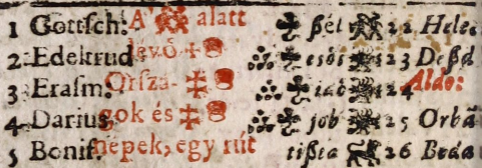 1 Gottsch: A' alatt ßél 22 Hele
2 Edeltrud lévő esős 23 Deßd
3 Erasm: Orszá- iaó 24 Aldo:
4 Darius gok és job 25 Orbā
5 Bonif. népek, egy rút tißta 26 Beda